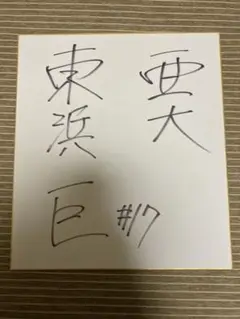 亜大
東浜
巨 #17